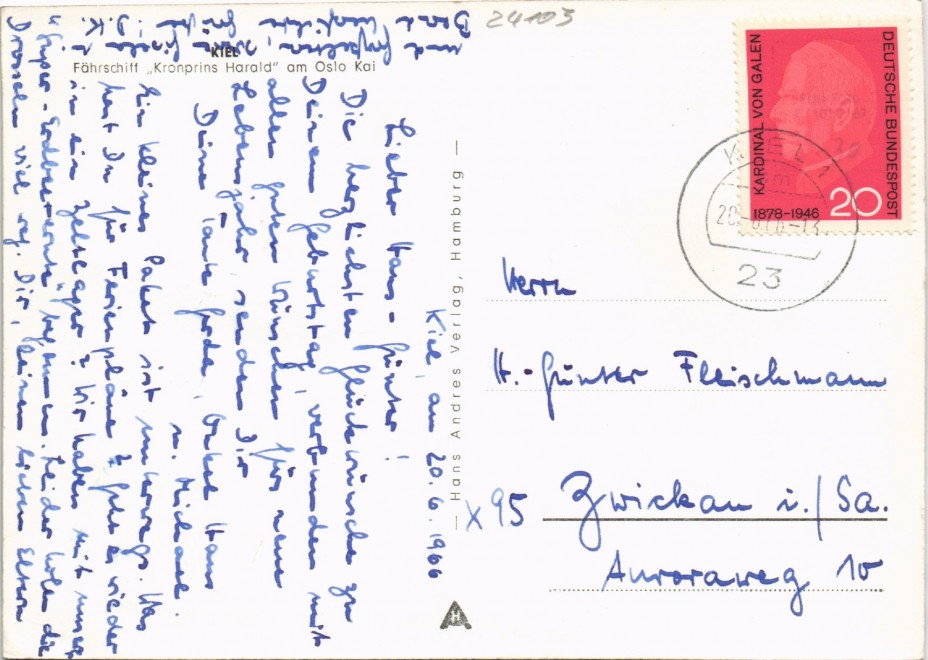 24103
KIEL
Fährschiff „Kronprins Harald" am Oslo Kai
Kiel, am 20.6.1966
Lieber Hans-Günter!
Die herzlichsten Glückwünsche zu
Deinem Geburtstag, verbunden mit
allen guten Wünschen fürs neue
Lebensjahr senden Dir
Deine Tante Gerda, Onkel Hans
u. Michael.
Ein kleines Paket ist unterwegs. Was
hast Du für Ferienpläne? Geht es wieder
in ein Zeltlager? Wir haben mit unserer
"Erdbeerernte" begonnen. Leider holen die
Drosseln viel weg. Dir, Deinen lieben Eltern
und
— Hans Andres Verlag, Hamburg —
H
KARDINAL VON GALEN
1878-1946
DEUTSCHE BUNDESPOST
20
KIEL 1
23
Herrn
H.-Günter Fleischmann
x95 Zwickau i./Sa.
Auroraweg 10